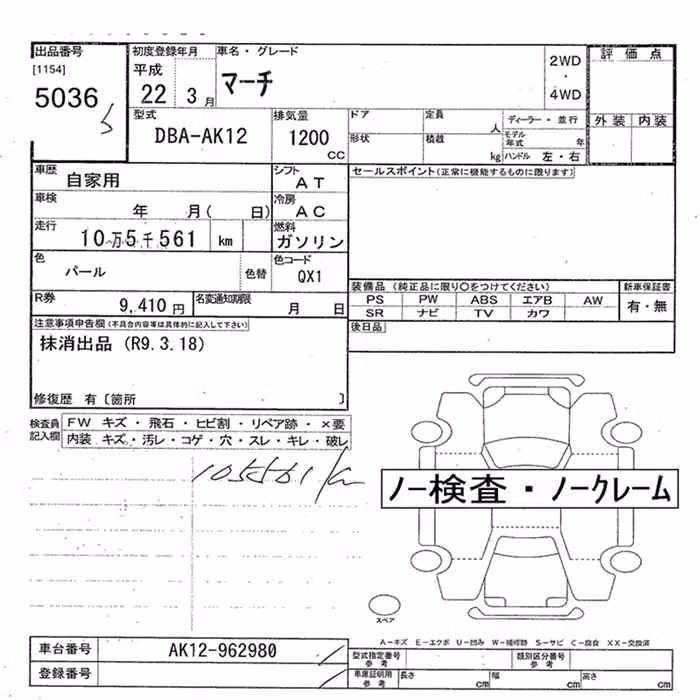 出品番号
[1154]
5036
5
初度登録年月
平成
22 3月
車名・グレード
マーチ
2WD
・
4WD
評価点
外装 内装
型式
DBA-AK12
排気量
1200
CC
ドア
定員
人
ディーラー・並行
形状
積載
kg
モデル年式
年
ハンドル 左・右
車歴
自家用
シフト
AT
セールスポイント(正常に機能するものに限ります)
車検
年 月( 日)
冷房
AC
走行
10万5千561 km
燃料
ガソリン
色
パール
色替
色コード
QX1
装備品 (純正品に限り〇をつけてください)
新車保証書
PS PW ABS エアB AW
有・無
SR ナビ TV カワ
R券
9,410円
名変通知期限
月 日
後日品
注意事項申告欄(不具合内容等は具体的に記入して下さい)
抹消出品 (R9.3.18)
修復歴 有〔箇所 〕
検査員記入欄
FW キズ・飛石・ヒビ割・リペア跡・×要
内装 キズ・汚レ・コゲ・穴・スレ・キレ・破レ
105561
ノー検査・ノークレーム
スペア
A-キズ E-エクボ U-凹み W-補修跡 S-サビ C-腐食 XX-交換済
車台番号
AK12-962980
型式指定番号
参考
類別区分番号
参考
登録番号
車庫証明用
参考
長さ
cm
幅
cm
高さ
cm